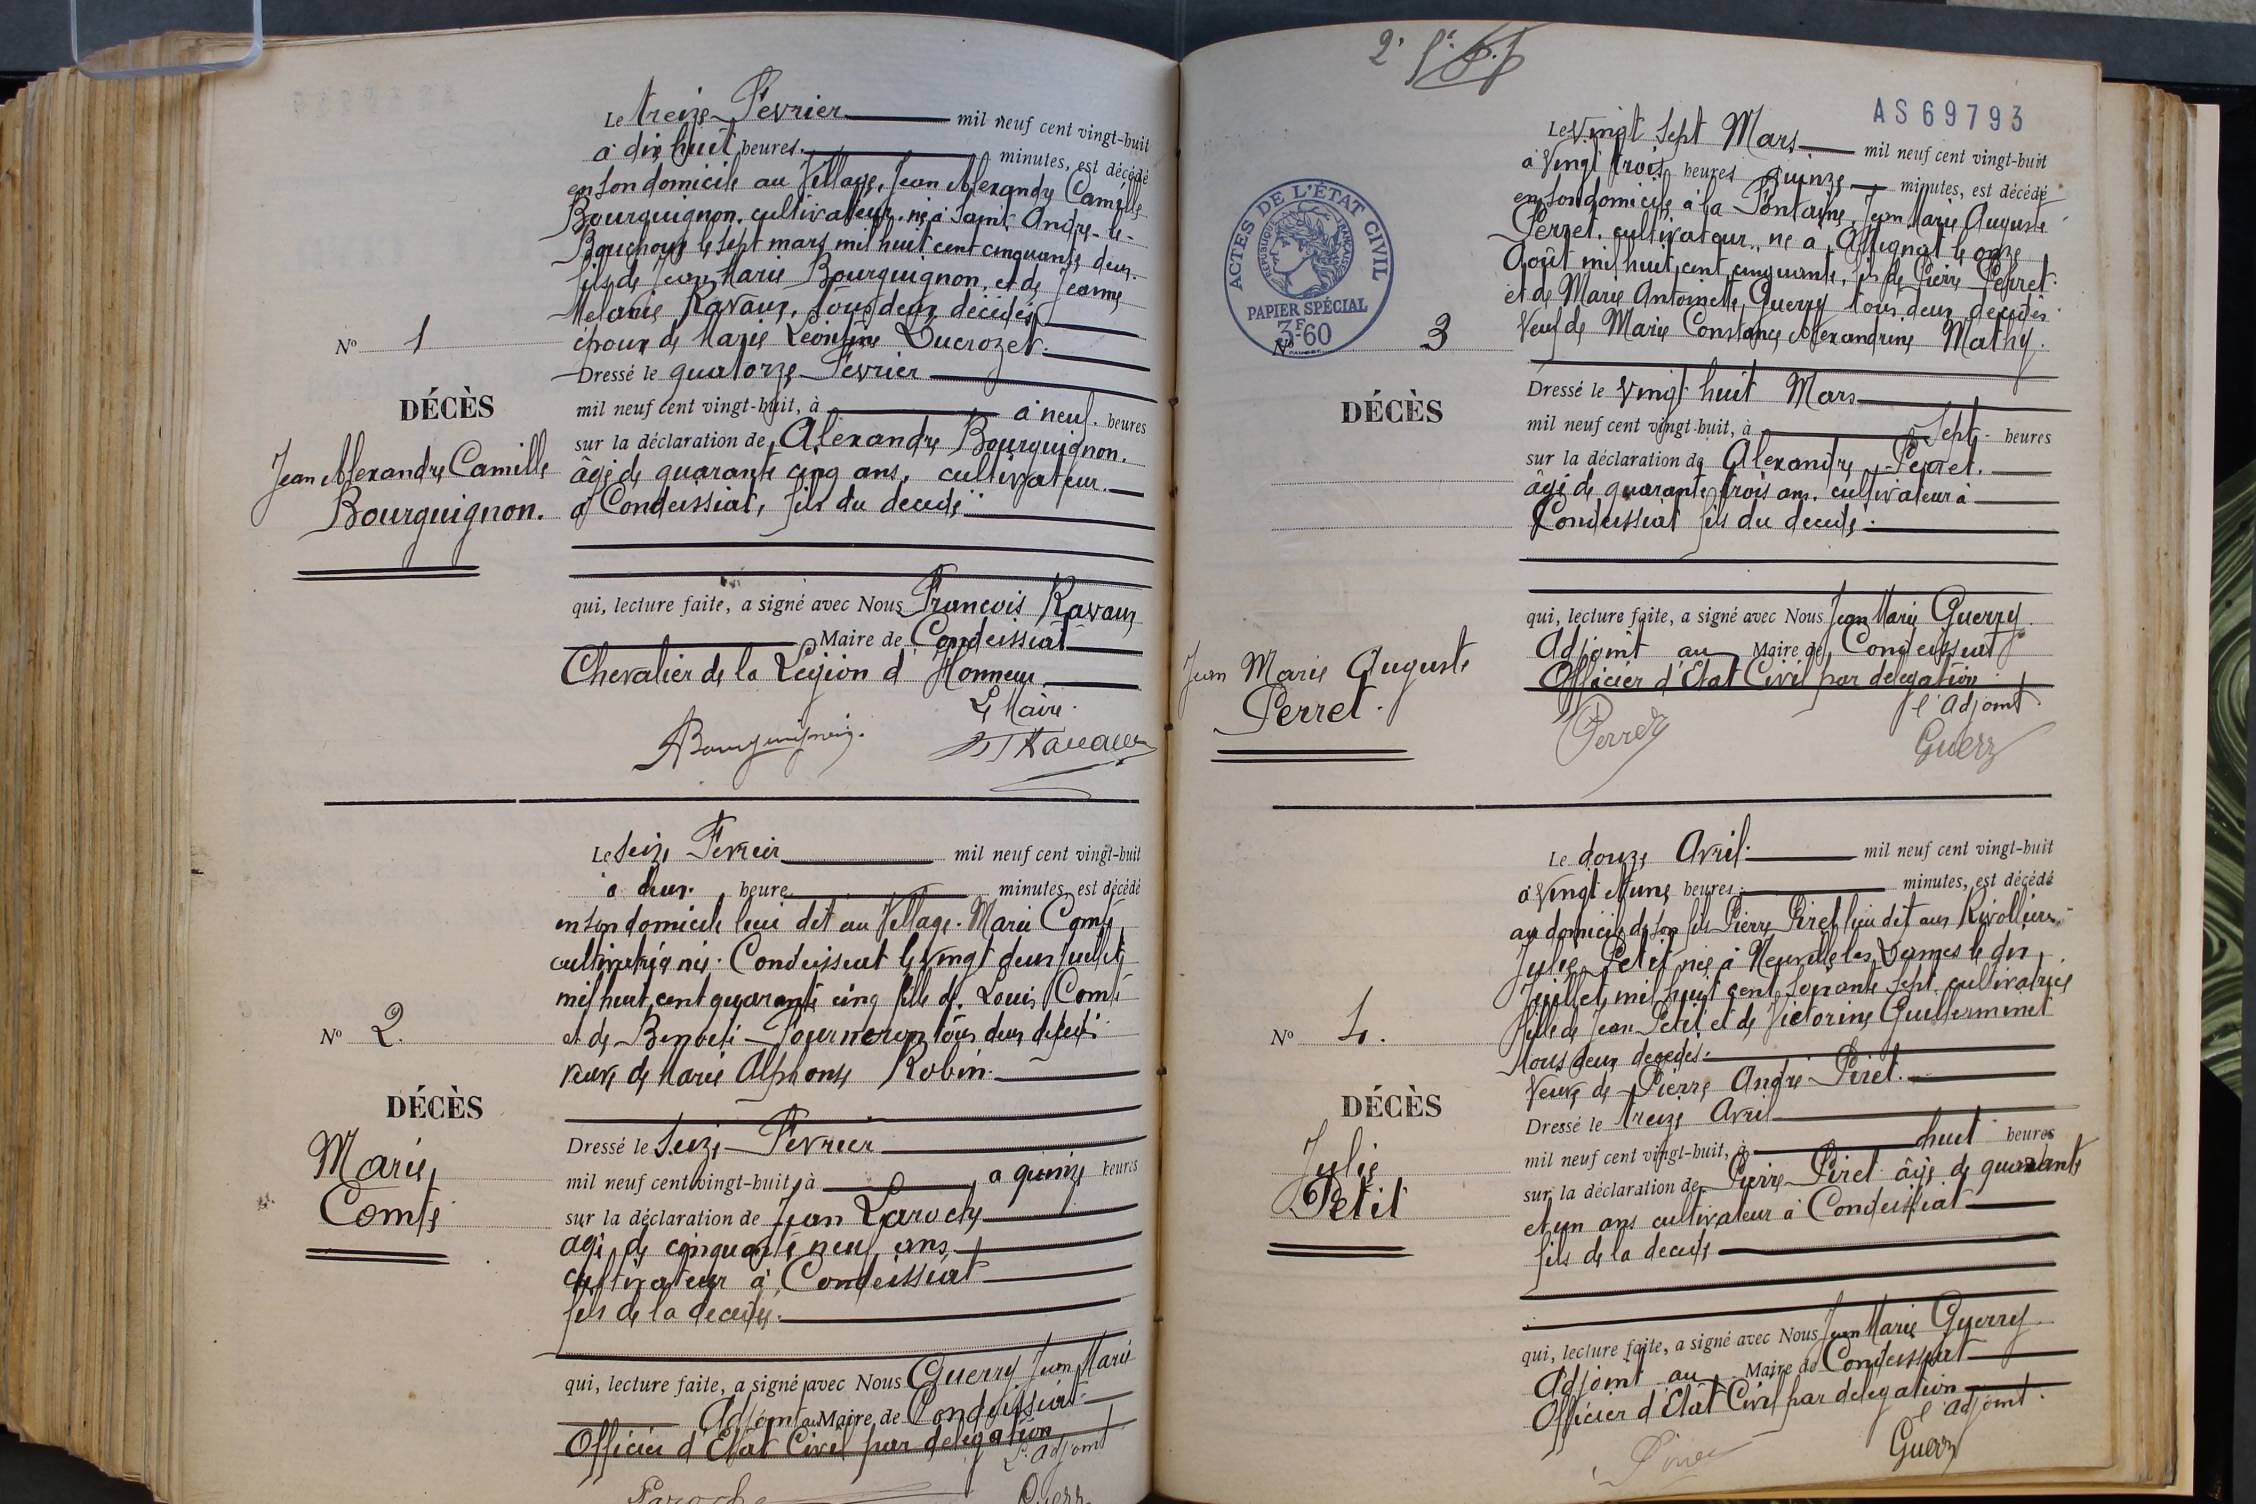 Le treize Février mil neuf cent vingt-huit
à dix huit heures. minutes, est décédé
en son domicile au Village, Jean Alexandre Camille
Bourguignon, cultivateur, né à Saint André-le-
Bouchoux le sept mars mil huit cent cinquante deux.
fils de Jean Marie Bourguignon, et de Jeanne
Melanie Ravaux, tous deux décédés
époux de Marie Léontine Ducrozet.
Dressé le quatorze Février
mil neuf cent vingt-huit, à à neuf. heures
sur la déclaration de Alexandre Bourguignon.
âgé de quarante cinq ans, cultivateur.
à Condeissiat, fils du decedé
Nº 1
DÉCÈS
Jean Alexandre Camille
Bourguignon.
qui, lecture faite, a signé avec Nous François Ravaux
Maire de Condeissiat
Chevalier de la Légion d'Honneur
Le Maire.
Bourguignon
Ravaux
Le seize Fevrier mil neuf cent vingt-huit
à deux. heure minutes, est décédé
en son domicile lieu dit au Village. Marie Comte
cultivatrice née. Condeissiat le vingt deux Juillet
mil huit cent quarante cinq fille de Louis Comte
et de Benoite Journeron tous deux
veuve de Marie Alphonse Robin.
Nº 2.
DÉCÈS
Marie
Comte
Dressé le Seize Février
mil neuf cent vingt-huit, à a quinze heures
sur la déclaration de Jean Laroche
agé de cinquante neuf ans
cultivateur à Condeissiat
fils de la decedée.
qui, lecture faite, a signé avec Nous Guerry Jean Marie
Adjoint au Maire de Condeissiat
Officier d'Etat Civil par delegation
L'adjoint
Laroche Guerry
2e
AS69793
Le vingt sept Mars mil neuf cent vingt-huit
à vingt trois heures quinze minutes, est décédé
en son domicile à la Fontaine, Jean Marie Auguste
Perret, cultivateur, né a Attignat le onze
Août mil huit cent cinquante, fils de Pierre Perret
et de Marie Antoinette Guerry tous deux decedés
Veuf de Marie Constance Alexandrine Mathy.
ACTES DE L'ÉTAT CIVIL
RÉPUBLIQUE FRANÇAISE
PAPIER SPÉCIAL
3F60
Nº 3
DÉCÈS
Jean Marie Auguste
Perret.
Dressé le vingt huit Mars
mil neuf cent vingt-huit, à Sept. heures
sur la déclaration de Alexandre Perret.
âgé de quarante trois ans. cultivateur à
Condeissiat fils du decedé.
qui, lecture faite, a signé avec Nous Jean Marie Guerry
Adjoint au Maire de Condeissiat
Officier d'Etat Civil par delegation
l'adjoint
Perret
Guerry
Le douze Avril. mil neuf cent vingt-huit
à vingt et une heures. minutes, est décédé
au domicile de son fils Pierre Piret lieu dit aux Rivollières
Julie Petit née à Neuville les Dames le dix
Juillet mil huit cent soixante sept cultivatrice
fille de Jean Petit et de Victorine Guillerminet
tous deux decedés.
Veuve de Pierre André Piret.
Nº 4.
DÉCÈS
Julie
Petit
Dressé le treize Avril
mil neuf cent vingt-huit, à huit heures
sur la déclaration de Pierre Piret âgé de quarante
et un ans cultivateur à Condeissiat
fils de la decedé
qui, lecture faite, a signé avec Nous Jean Marie Guerry
Adjoint au Maire de Condeissiat
Officier d'Etat Civil par delegation
l'adjoint.
Guerry